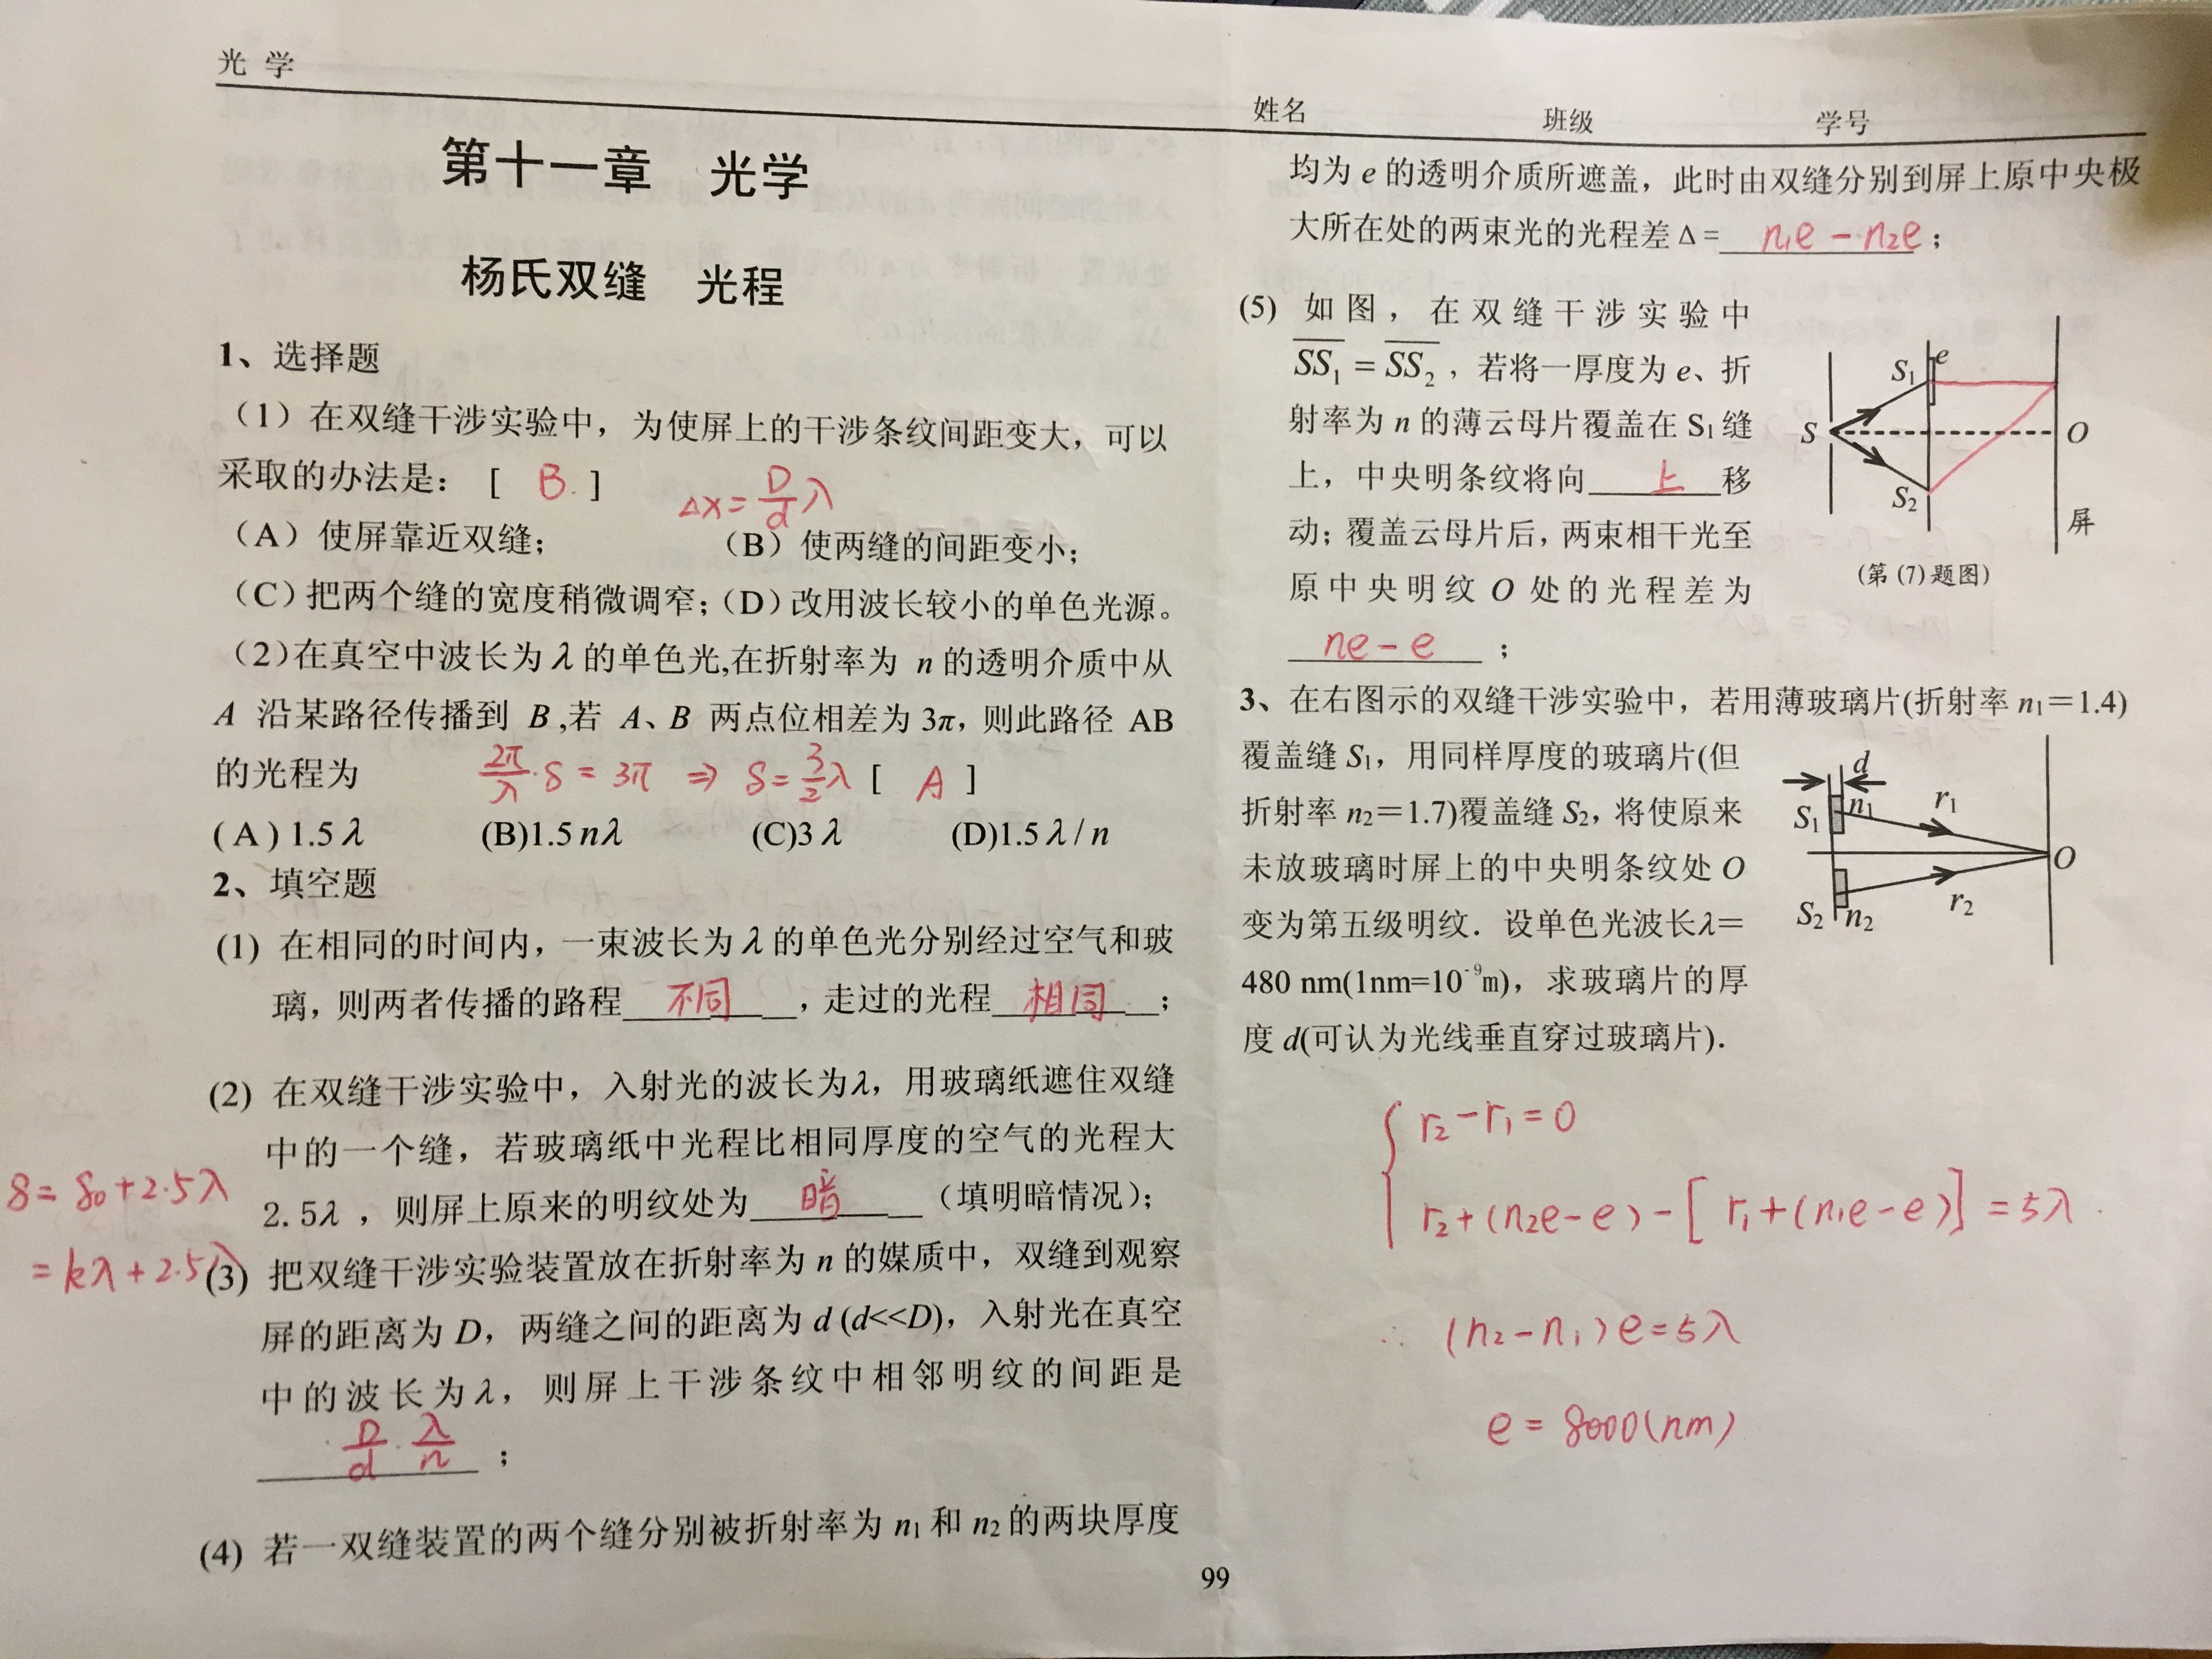 光 学
姓名 班级 学号
第十一章 光学
杨氏双缝 光程
1、选择题
（1）在双缝干涉实验中，为使屏上的干涉条纹间距变大，可以
采取的办法是： [ B. ]
Δx = D/d λ
（A）使屏靠近双缝； （B）使两缝的间距变小；
（C）把两个缝的宽度稍微调窄；（D）改用波长较小的单色光源。
（2）在真空中波长为 λ 的单色光,在折射率为 n 的透明介质中从
A 沿某路径传播到 B ,若 A、B 两点位相差为 3π，则此路径 AB
的光程为 2π/λ · δ = 3π ⇒ δ = 3/2 λ [ A ]
( A ) 1.5 λ (B)1.5 nλ (C)3 λ (D)1.5 λ / n
2、填空题
(1) 在相同的时间内，一束波长为 λ 的单色光分别经过空气和玻
璃，则两者传播的路程 不同 ，走过的光程 相同 ；
(2) 在双缝干涉实验中，入射光的波长为λ，用玻璃纸遮住双缝
中的一个缝，若玻璃纸中光程比相同厚度的空气的光程大
2.5λ ，则屏上原来的明纹处为 暗 （填明暗情况）；
δ = δ0 + 2.5λ
= kλ + 2.5λ
(3) 把双缝干涉实验装置放在折射率为 n 的媒质中，双缝到观察
屏的距离为 D，两缝之间的距离为 d (d<<D)，入射光在真空
中的波长为 λ，则屏上干涉条纹中相邻明纹的间距是
D/d · λ/n ；
(4) 若一双缝装置的两个缝分别被折射率为 n1 和 n2 的两块厚度
均为 e 的透明介质所遮盖，此时由双缝分别到屏上原中央极
大所在处的两束光的光程差 Δ = n1e - n2e ；
(5) 如图，在双缝干涉实验中
SS1 = SS2 ，若将一厚度为 e、折
射率为 n 的薄云母片覆盖在 S1 缝
上，中央明条纹将向 上 移
动；覆盖云母片后，两束相干光至
原中央明纹 O 处的光程差为
ne - e ；
S1 e
S O
S2
屏
(第 (7) 题图)
3、在右图示的双缝干涉实验中，若用薄玻璃片(折射率 n1＝1.4)
覆盖缝 S1，用同样厚度的玻璃片(但
折射率 n2＝1.7)覆盖缝 S2，将使原来
未放玻璃时屏上的中央明条纹处 O
变为第五级明纹．设单色光波长λ＝
480 nm(1nm=10⁻⁹m)，求玻璃片的厚
度 d(可认为光线垂直穿过玻璃片)．
d
S1 n1 r1
O
S2 n2 r2
r2 - r1 = 0
r2 + (n2e - e) - [ r1 + (n1e - e)] = 5λ
∴ (n2 - n1) e = 5λ
e = 8000 (nm)
99